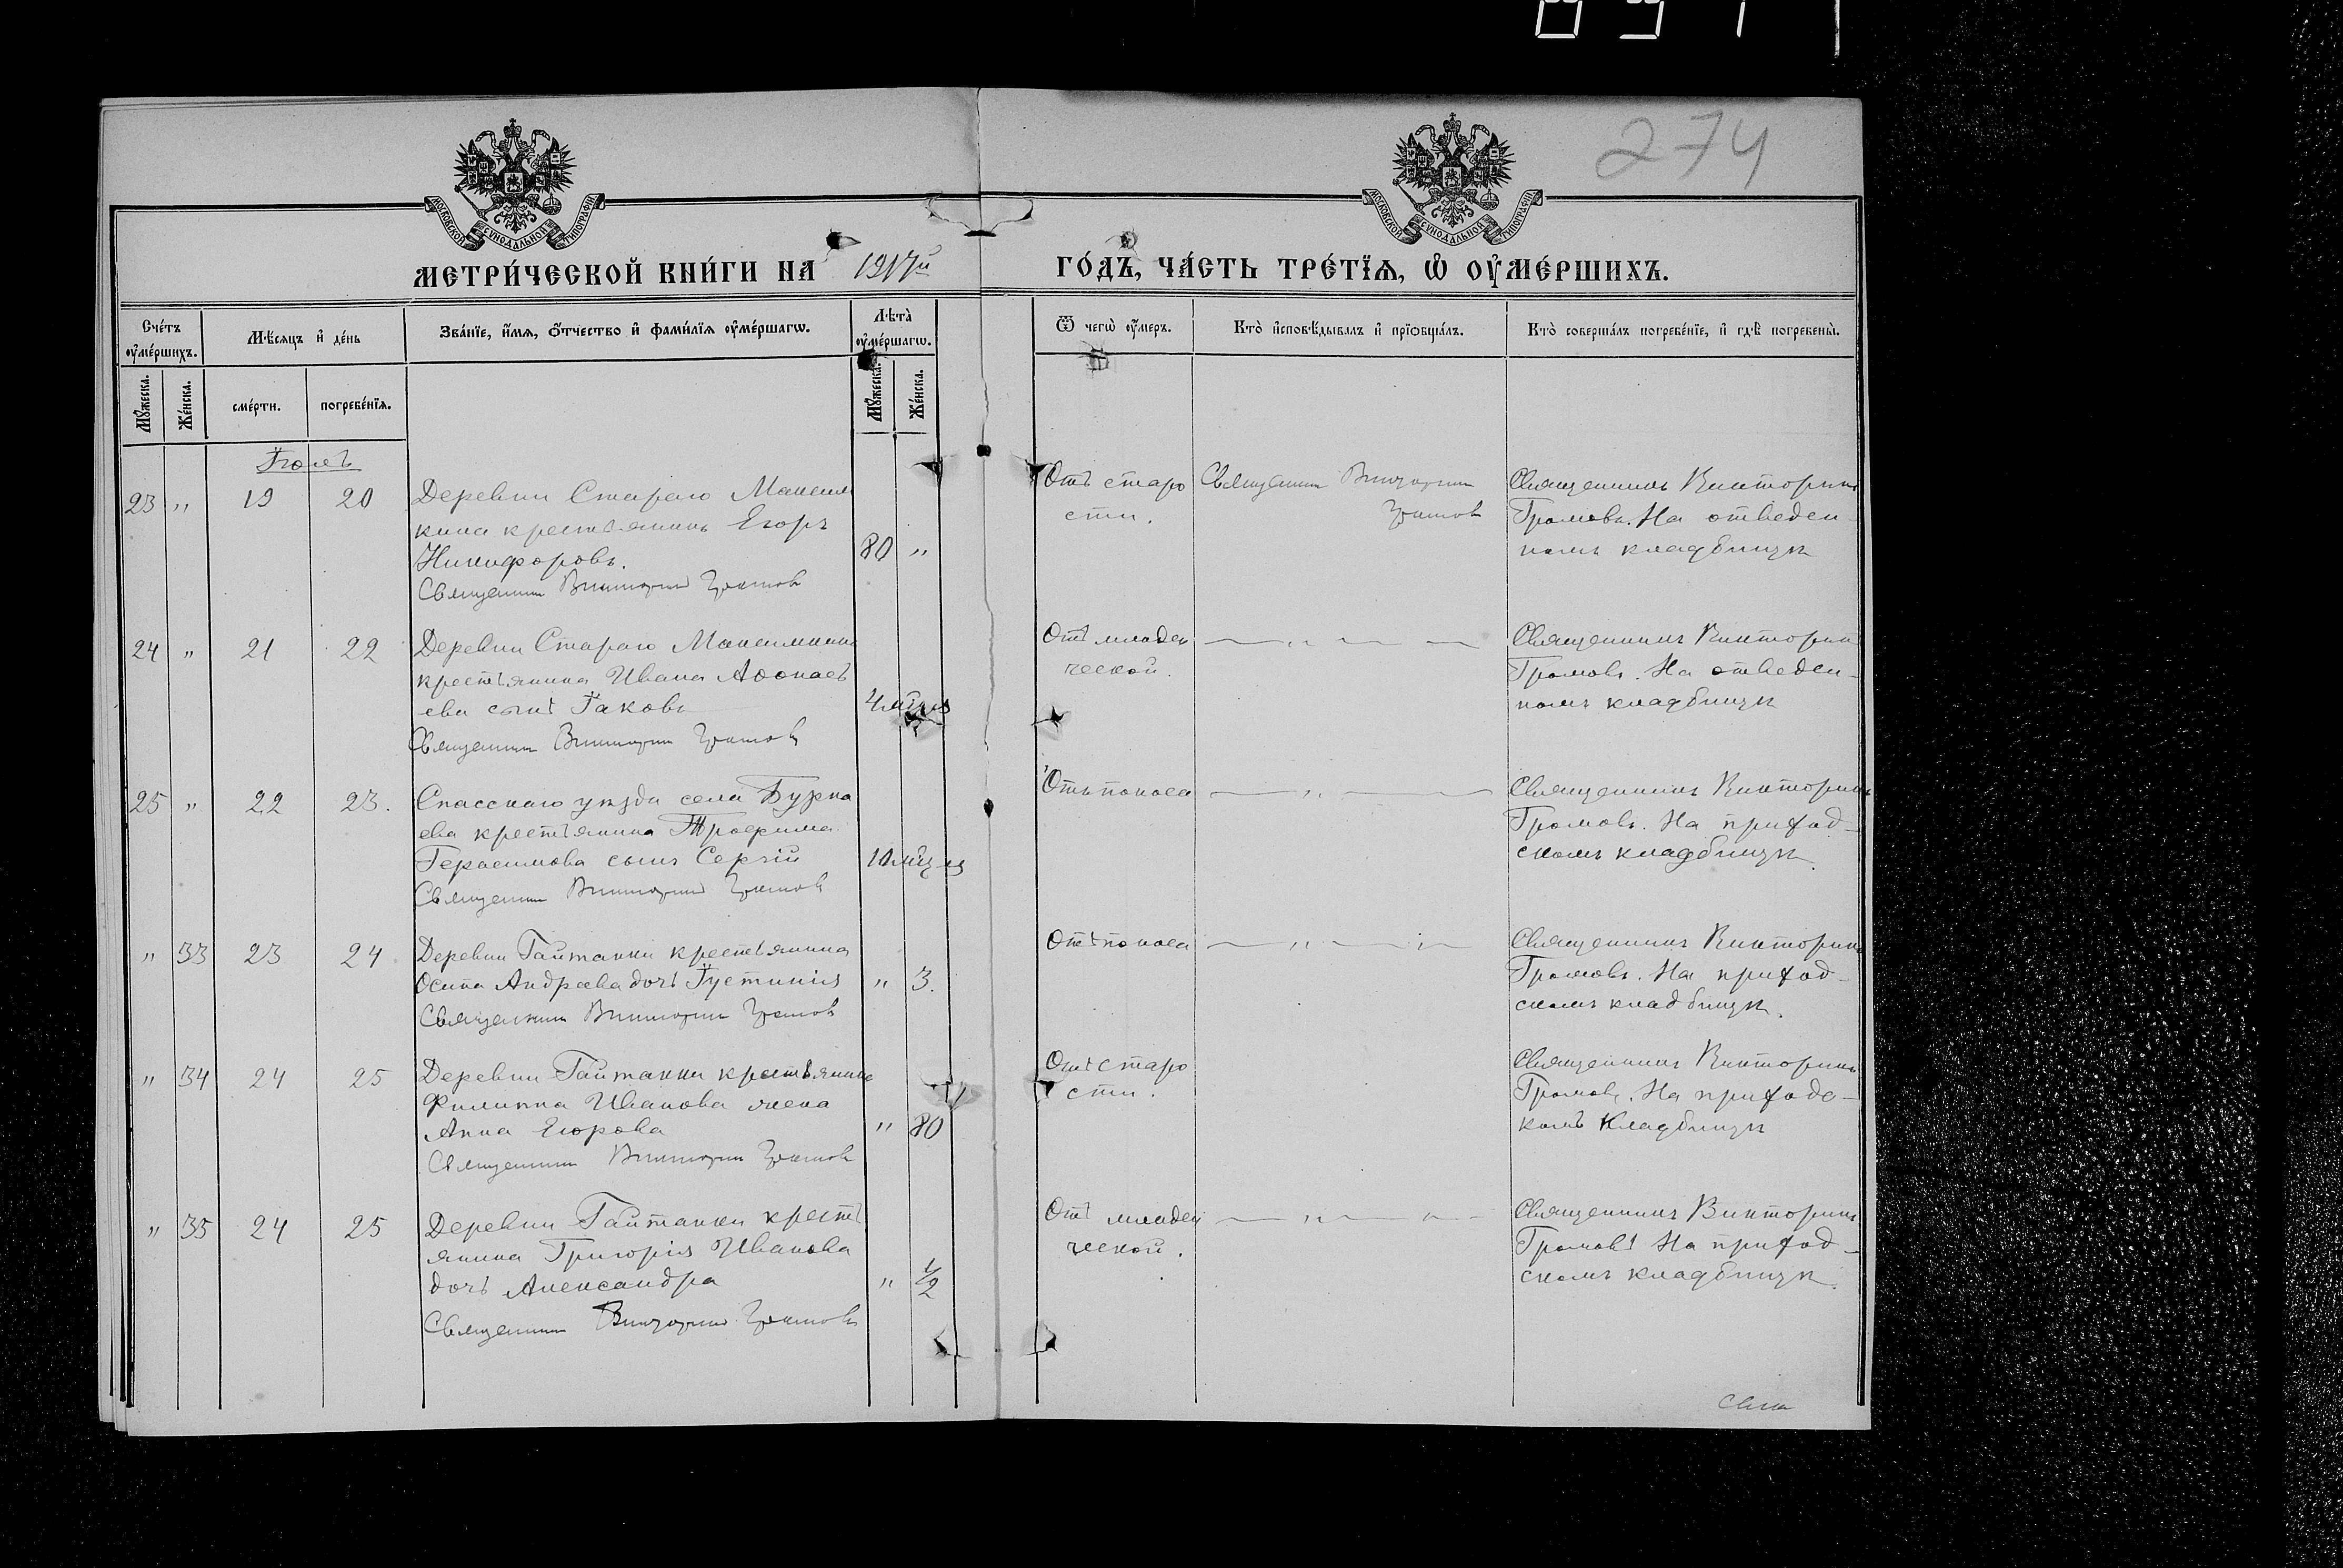 891
274
МОСКОВСКОЙ СѴНОДАЛЬНОЙ ТИПОГРАФІИ
МОСКОВСКОЙ СѴНОДАЛЬНОЙ ТИПОГРАФІИ
МЕТРИ́ЧЕСКОЙ КНИ́ГИ НА 1917й
ГО́ДЪ, ЧА́СТЬ ТРЕ́ТІѦ, Ѡ҆ ОУ҆МЕ́РШИХЪ.
Сче́тъ оу҆ме́ршихъ.
Мѣ́сяцъ и҆ де́нь
Зва́нїе, и҆́мя, ѻ҆́тчество и҆ фами́лїя оу҆ме́ршагѡ.
Лѣта̀ оу҆ме́ршагѡ.
Ѿ чегѡ̀ оу҆́меръ.
Кто̀ и҆сповѣ́дывалъ и҆ прїѡбща́лъ.
Кто̀ соверша́лъ погребе́нїе, и҆ гдѣ̀ погребены̀.
Мꙋ́жеска.
Же́нска.
сме́рти.
погребе́нїя.
Мꙋ́жеска.
Же́нска.
Іюль
23 " 19 20 Деревни Стараго Максим
кина крестьянинъ Егоръ
Никифоровъ. 80 "
Священник Викторин Громов
Отъ старо
сти.
Священник Викторин
Громов
Священникъ Викторинъ
Громовъ. На отведен-
номъ кладбищѣ
24 " 21 22 Деревни Стараго Максимкина
крестьянина Ивана Аѳонась
ева сынъ Іаковъ 4 мѣця
Священник Викторин Громов
Отъ младен
ческой.
— " — —
Священникъ Викторин
Громовъ. На отведен-
номъ кладбищѣ
25 " 22 23. Спасскаго уѣзда села Бурна
ева крестьянина Трофима
Герасимова сынъ Сергій 10 мѣця
Священник Викторин Громов
Отъ поноса
— " — —
Священникъ Викторинъ
Громовъ. На приход-
скомъ кладбищѣ.
" 33 23 24 Деревни Гайтанки крестьянина
Осипа Андреева дочь Іустинія " 3.
Священник Викторин Громов
Отъ поноса
— " — " —
Священникъ Викторинъ
Громовъ. На приход-
скомъ кладбищѣ.
" 34 24 25 Деревни Гайтанки крестьянина
Филиппа Иванова жена
Анна Егорова " 80
Священник Викторин Громов
Отъ старо
сти.
Священникъ Викторинъ
Громовъ. На приходс-
комъ кладбищѣ
" 35 24 25 Деревни Гайтанки кресть
янина Григорія Иванова
дочь Александра " 1/2
Священник Викторин Громовъ
Отъ младен
ческой.
— " — " —
Священникъ Викторинъ
Громовъ На приход-
скомъ кладбищѣ.